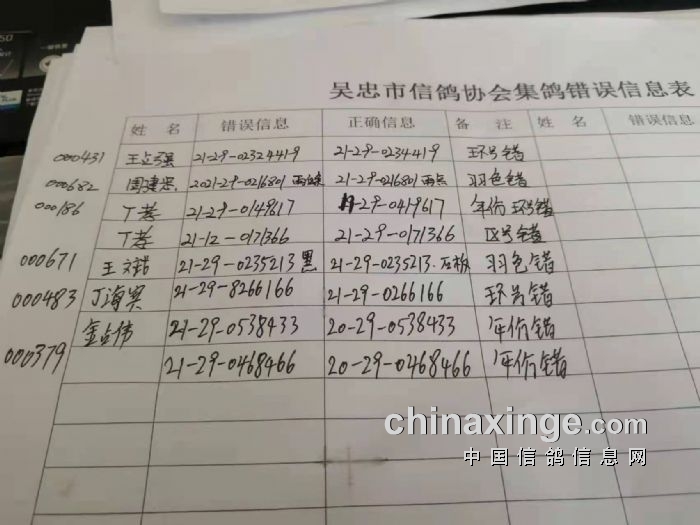 吴忠市信鸽协会集鸽错误信息表
姓 名 错误信息 正确信息 备 注 姓 名 错误信息
000431 王立强 21-29-02324419 21-29-0234419 环号错
000682 周建 2021-29-0216801 21-29-0216801 雨点 羽色错
000186 丁孝 21-29-0149617 19-29-0419617 年份 环号错
丁孝 21-12-0171366 21-29-0171366 区号错
000671 王文 21-29-0235213 黑 21-29-0235213 石板 羽色错
000483 丁海宾 21-29-8266166 21-29-0266166 环号错
000379 金占伟 21-29-0538433 20-29-0538433 年份错
21-29-0468466 20-29-0468466 年份错
chinaxinge.com
中国信鸽信息网